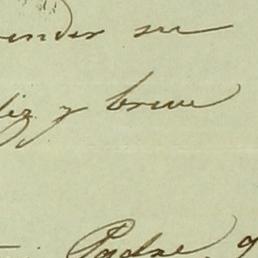 ender su
liz y breve
Padre, q